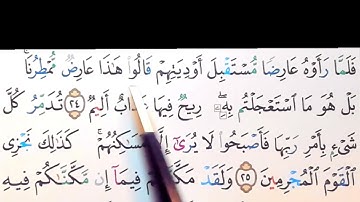 فَلَمَّا رَأَوْهُ عَارِضًا مُّسْتَقْبِلَ أَوْدِيَتِهِمْ قَالُوا۟ هَٰذَا عَارِضٌ مُّمْطِرُنَا ۚ
بَلْ هُوَ مَا ٱسْتَعْجَلْتُم بِهِۦ ۖ رِيحٌ فِيهَا عَذَابٌ أَلِيمٌ ٢٤ تُدَمِّرُ كُلَّ
شَىْءٍۭ بِأَمْرِ رَبِّهَا فَأَصْبَحُوا۟ لَا يُرَىٰٓ إِلَّا مَسَٰكِنُهُمْ ۚ كَذَٰلِكَ نَجْزِى
ٱلْقَوْمَ ٱلْمُجْرِمِينَ ٢٥ وَلَقَدْ مَكَّنَّٰهُمْ فِيمَآ إِن مَّكَّنَّٰكُمْ فِيهِ